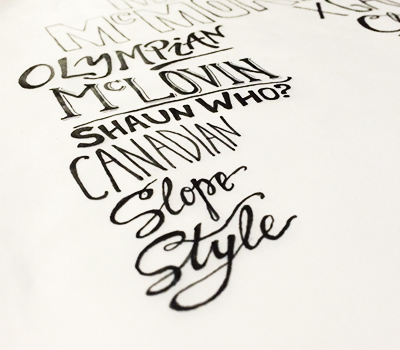 McMOR
OLYMPiAN
McLOVIN
SHAUN WHO?
CANADIAN
Slope
Style